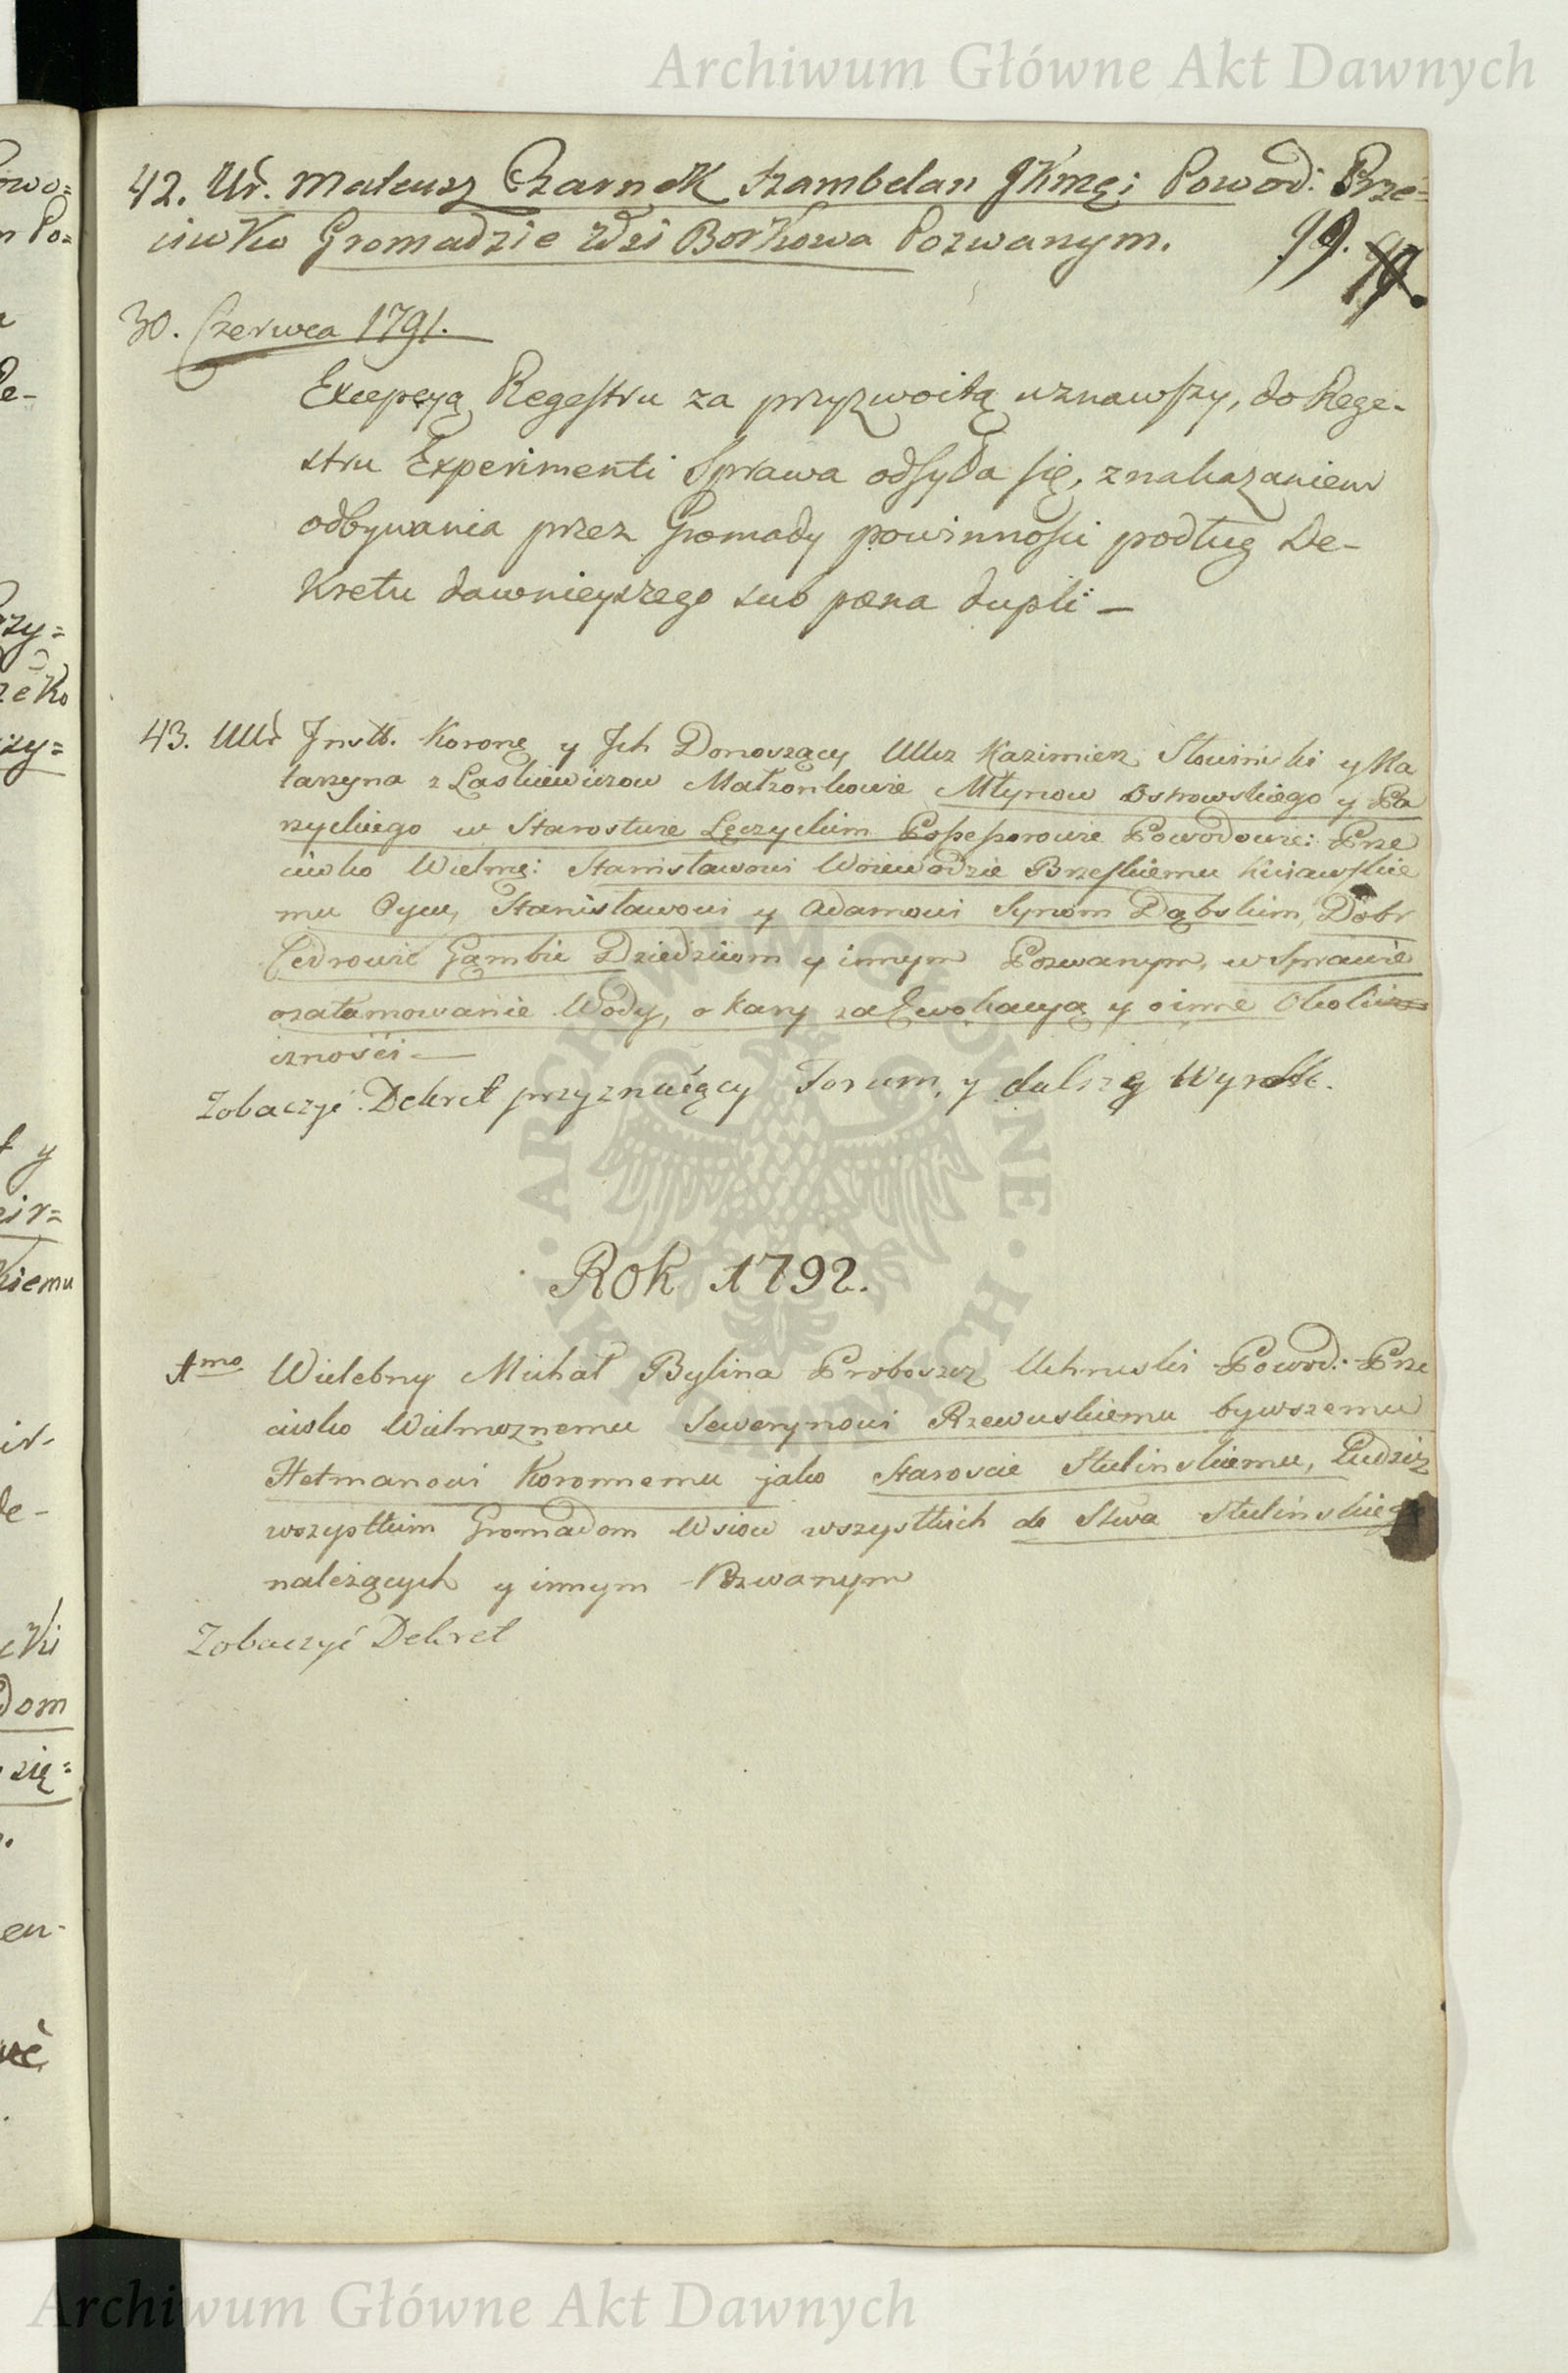 Archiwum Główne Akt Dawnych
42. Ur. Mateusz Czarnek Szambelan JKmći Powod: Prze=
ciwko Gromadzie Wsi Borkowa Pozwanym.
99.
30. Czerwca 1791.
Excepcyą Regestru za przyzwoitą uznawszy, do Rege-
stru Experimenti Sprawa odsyła się, z nakazaniem
odbywania przez Gromady powinności podług De-
kretu dawnieyszego sub pæna dupli —
43. UUr Instt. Koronę y Ich Donoszący UUrz Kazimierz Słowiński y Ka
tarzyna z Laskiewiczow Małzonkowie Młynow Ostrowskiego y
w Starostwie Łęczyckim Possessorowie Powodowie: Prze
ciwko Wielmę: Stanisławowi Woiewodzie Brzeskiemu Kuiawskie
mu Oycu, Stanisławowi y Adamowi Synom Dąbskim, Dobr
Cedrowic Gąmbic Dziedzicom y innym Pozwanym, w Sprawie
ozatamowanie Wody, o kary za Ewokacyą y o inne Okolicz
czności —
Zobaczyć Dekret przyznaiący Forum, y dalszy Wyrok.
Rok 1792.
1mo Wielebny Michał Bylina Proboszcz Uhruski Powod: Prze
ciwko Wielmoznemu Sewerynowi Rzewuskiemu bywszemu
Hetmanowi Koronnemu jako Staroscie Stulinskiemu, Tudziez
wszystkim Gromadom Wsiow wszystkich do Stwa Stulińskiego
należących y innym Pozwanym
Zobaczyć Dekret
ARCHIWUM GŁÓWNE AKT DAWNYCH
Archiwum Główne Akt Dawnych